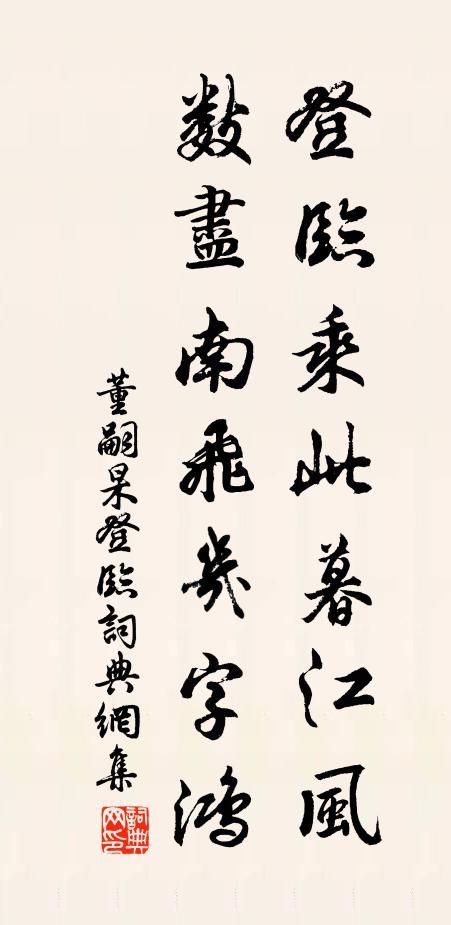 登臨乘此暮江風
數盡南飛幾字鴻
董嗣杲登臨詞典網集
詞典网印